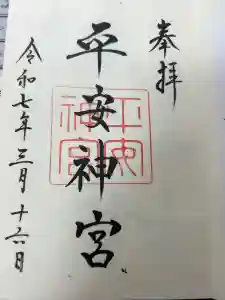 奉拝
平安神宮
平安
神宮
令和七年三月十六日